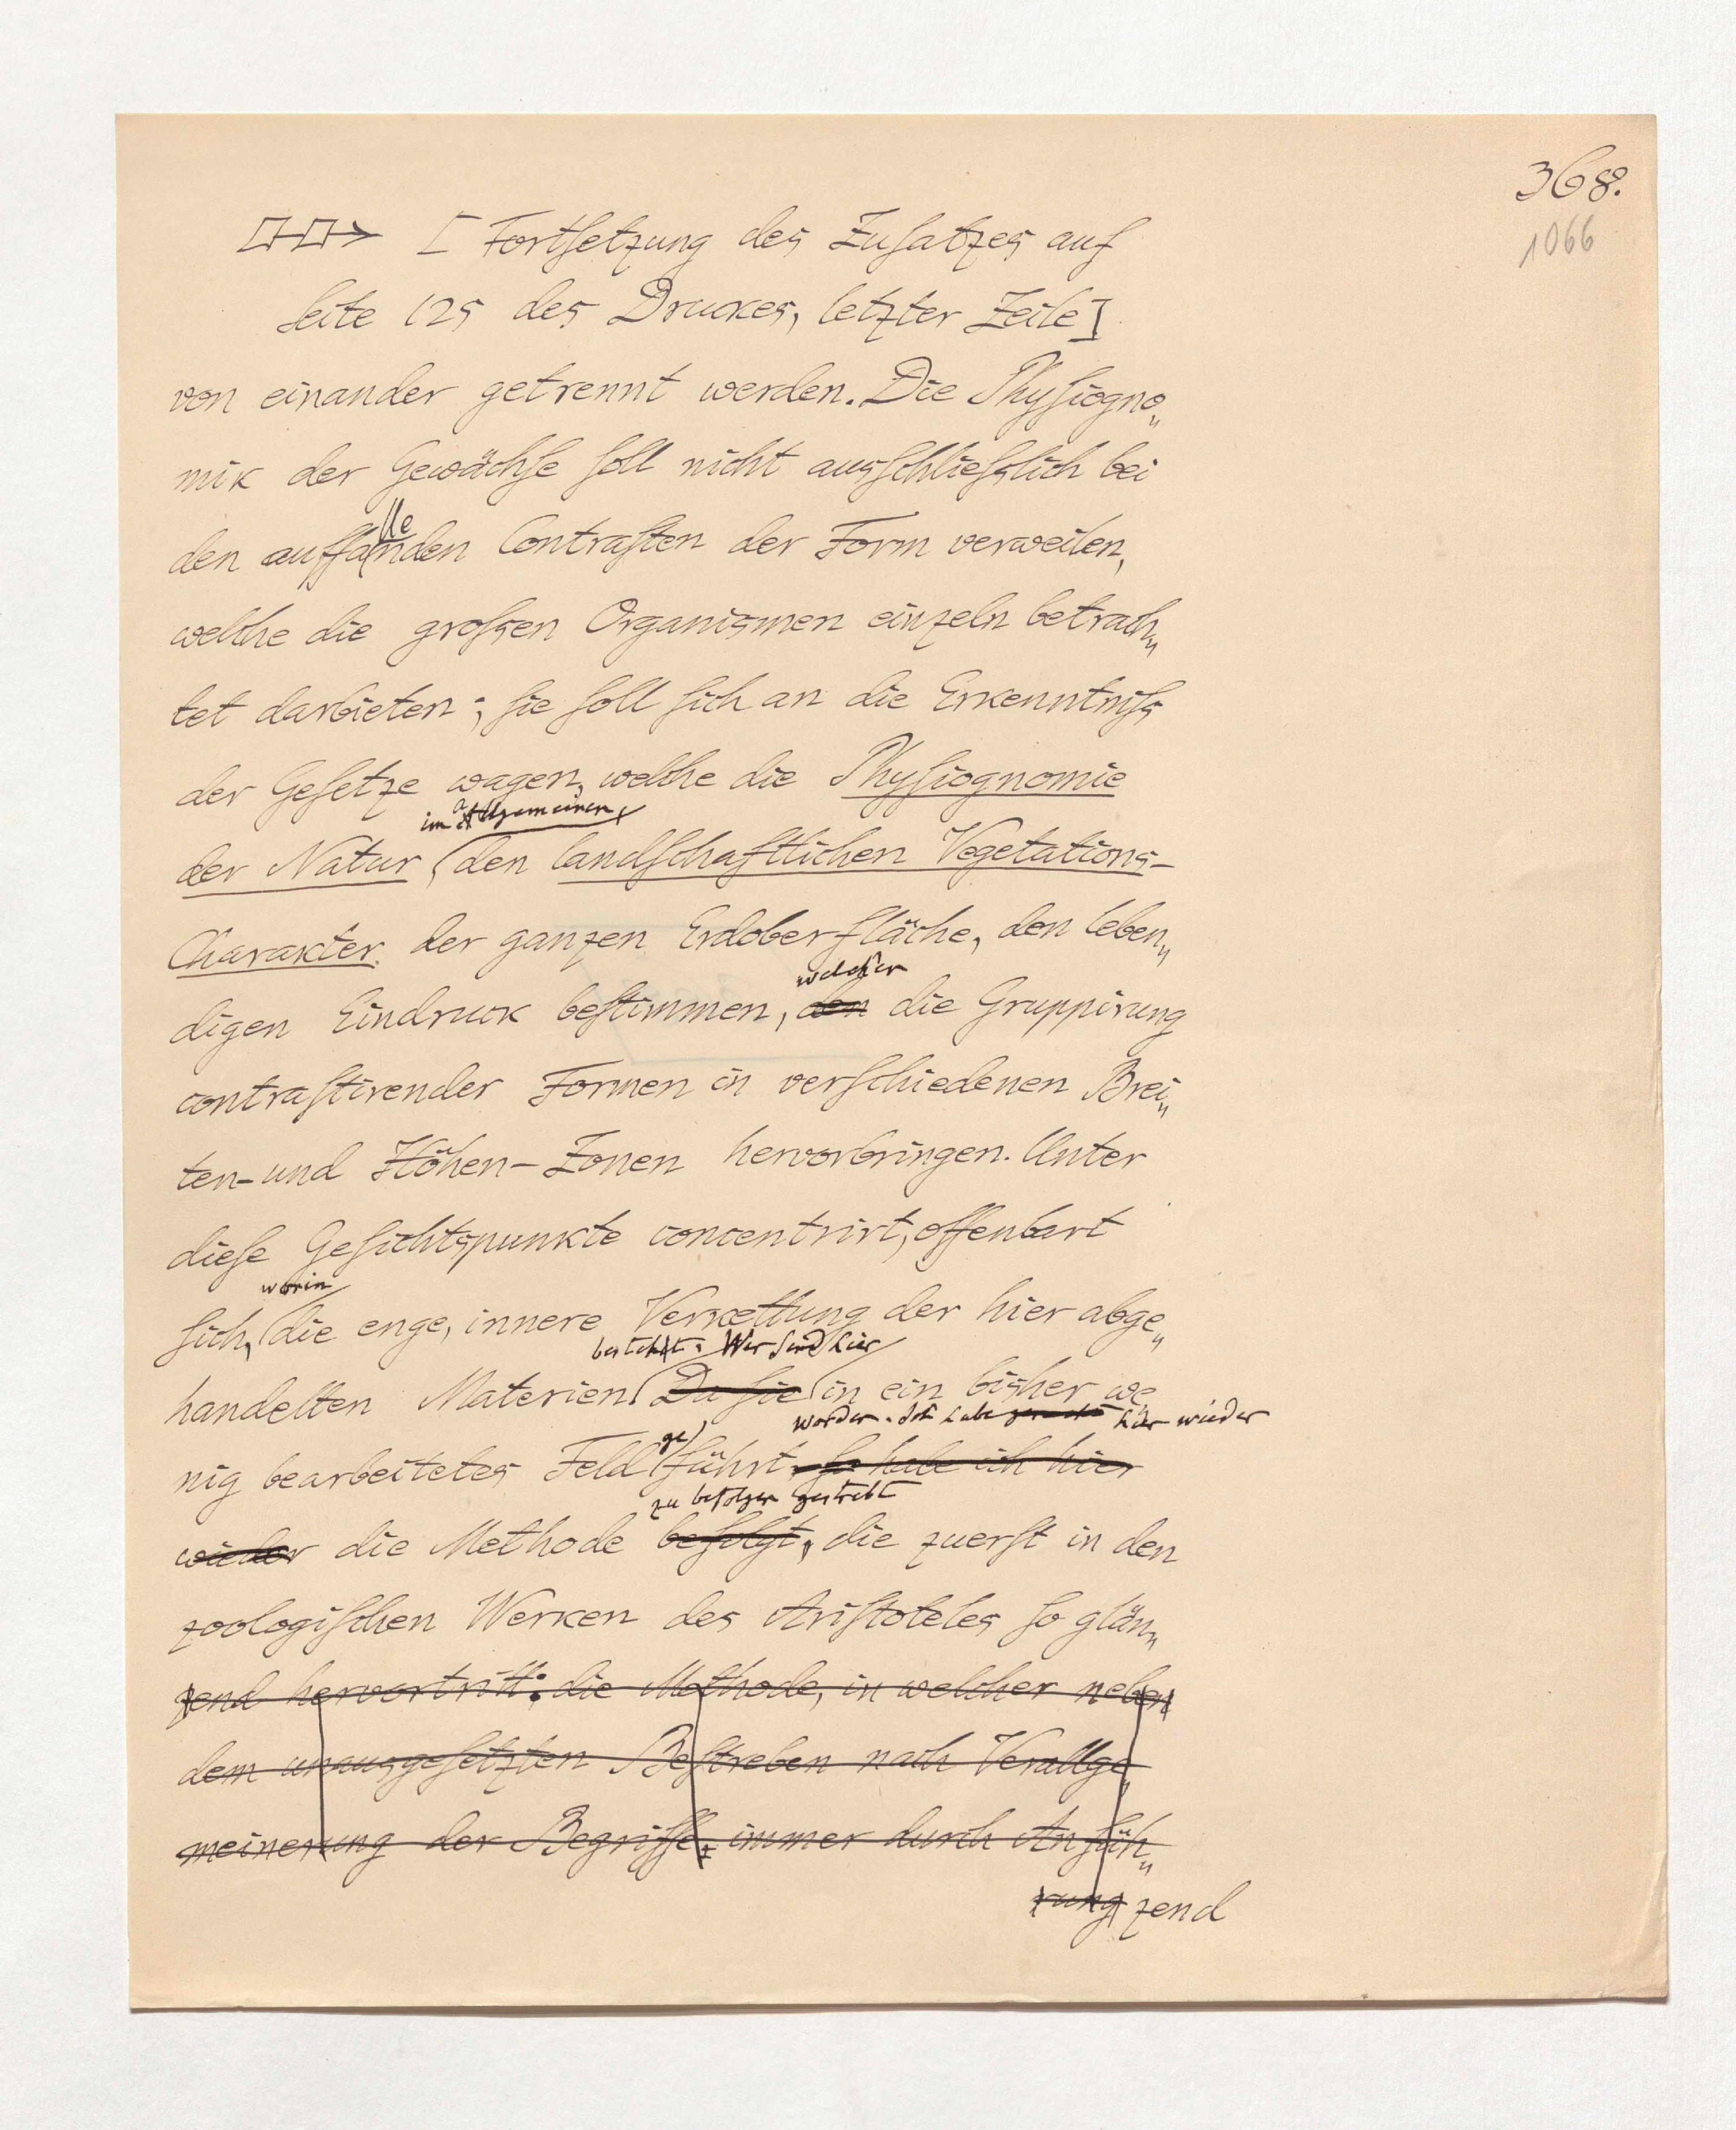 368.
1066
[ Fortſetzung des Zuſatzes auf
Seite 125 des Druckes, letzter Zeile]
von einander getrennt werden. Die Phyſiogno„
mik der Gewächſe ſoll nicht ausſchlieſslich bei
lle
den auffanden Contraſten der Form verweilen,
welche die groſsen Organismen einzeln betrach„
tet darbieten; ſie ſoll ſich an die Erkenntniſs
der Geſetze wagen, welche die Phyſiognomie
im allgemeinen,
der Natur den landſchaftlichen Vegetations-
Charakter der ganzen Erdoberfläche, den leben„
welcher
digen Eindruck beſtimmen, den die Gruppirung
contraſtirender Formen in verſchiedenen Brei„
ten- und Höhen-Zonen hervorbringen. Unter
dieſe Geſichtspunkte concentrirt, offenbart
worin
ſich, die enge, innere Verkettung der hier abge„
besteht. Wir ſind hier
handelten Materien Da ſie in ein bisher we„
worden. Ich habe hier wieder
ge
nig bearbeitetes Feld führt, ſo habe ich hier
zu befolgen gestrebt
wieder die Methode befolgt, die zuerſt in den
zoologiſchen Werken des Ariſtoteles ſo glän„
zend hervortritt: die Methode, in welcher neben
dem unausgeſetzten Beſtreben nach Verallge„
meinerung der Begriffe, immer durch Anfüh„
rung zend